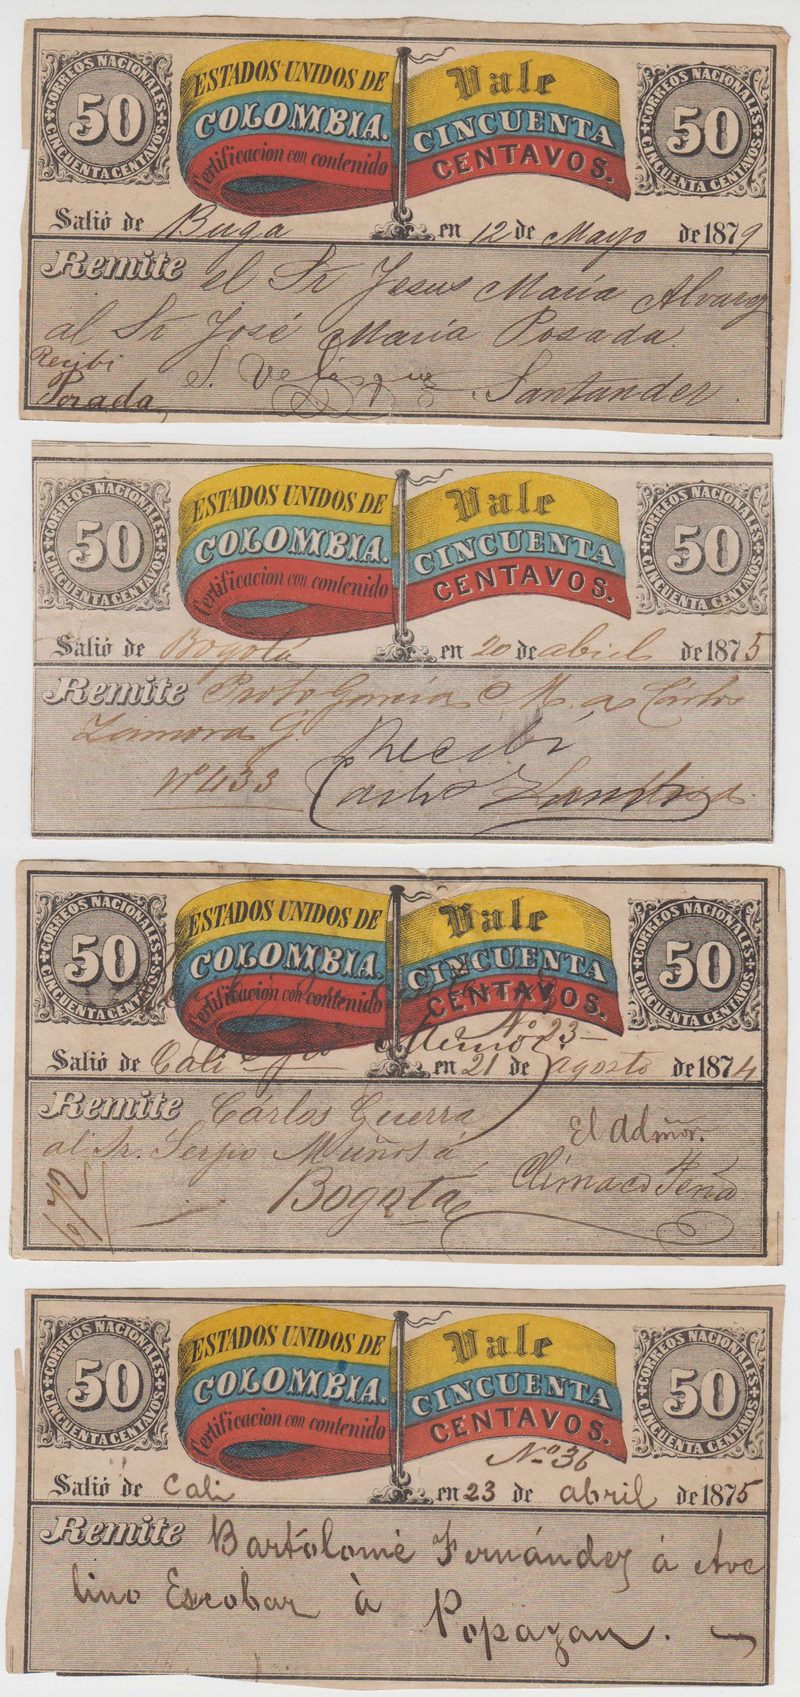 CORREOS NACIONALES
50
CINCUENTA CENTAVOS
ESTADOS UNIDOS DE
COLOMBIA.
Certificacion con contenido
Vale
CINCUENTA
CENTAVOS.
CORREOS NACIONALES
50
CINCUENTA CENTAVOS
Salió de Buga en 12 de Mayo de 1879
Remite el Sr Jesus María Alvarez
al Sr José María Posada
Recibi
Posada
S. Velásquez
Santander.
CORREOS NACIONALES
50
CINCUENTA CENTAVOS
ESTADOS UNIDOS DE
COLOMBIA.
Certificacion con contenido
Vale
CINCUENTA
CENTAVOS.
CORREOS NACIONALES
50
CINCUENTA CENTAVOS
Salió de Bogotá en 20 de abril de 1875
Remite Proto García M. a Cárlos
Zamora G.
Recibí
nº 433
Carlos Zamora
CORREOS NACIONALES
50
CINCUENTA CENTAVOS
ESTADOS UNIDOS DE
COLOMBIA.
Certificación con contenido
Vale
CINCUENTA
CENTAVOS.
CORREOS NACIONALES
50
CINCUENTA CENTAVOS
Nº 23
Salió de Cali en 21 de agosto de 1874
Remite Cárlos Guerra
al Sr. Serjio Muños á
Bogota
El Admor.
Clímaco Peña
672
CORREOS NACIONALES
50
CINCUENTA CENTAVOS
ESTADOS UNIDOS DE
COLOMBIA.
Certificacion con contenido
Vale
CINCUENTA
CENTAVOS.
CORREOS NACIONALES
50
CINCUENTA CENTAVOS
Nº 36
Salió de Cali en 23 de abril de 1875
Remite Bartolomé Fernández á Ave
lino Escobar à
Popayan.